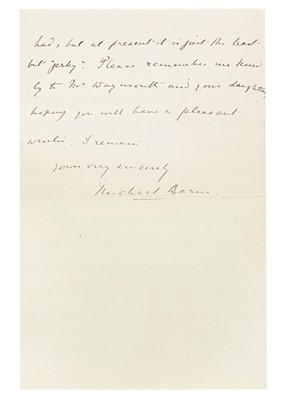 had, but at present it is just the least
bit "jerky". Please remember me kind
ly to Mr. Waymouth and your daughter,
hoping you will have a pleasant
winter. I remain
yours very sincerely
Michael Barne.